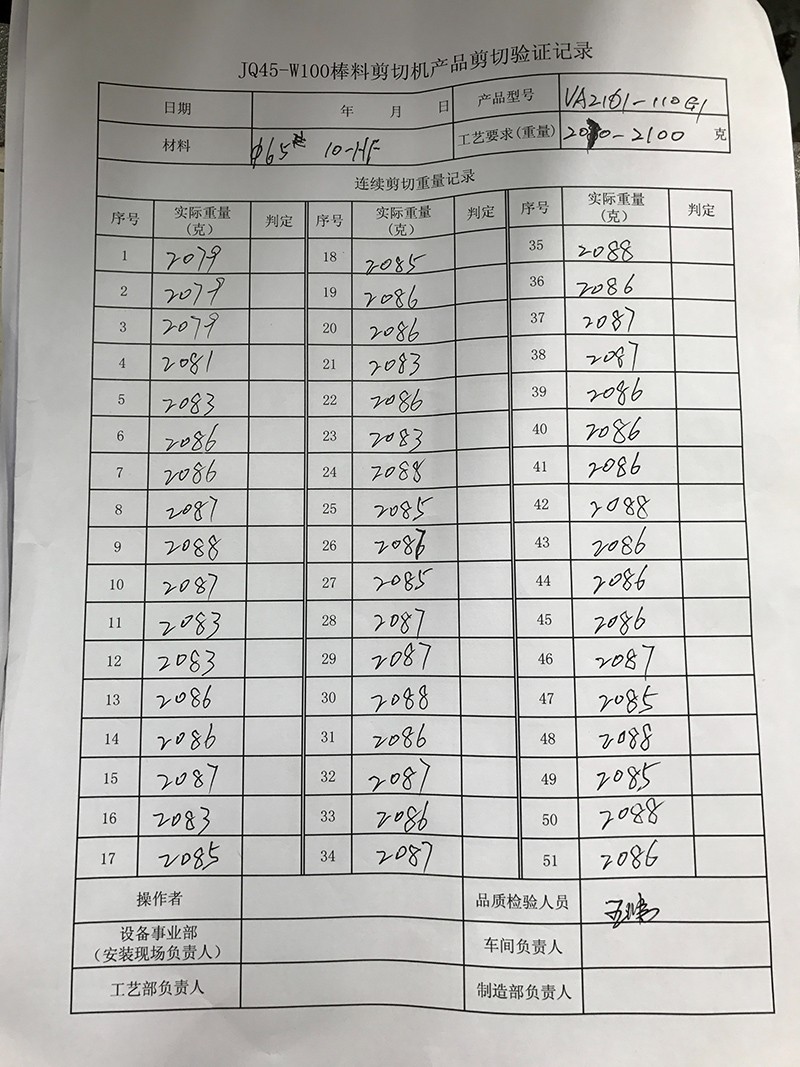 JQ45-W100棒料剪切机产品剪切验证记录
日期 年 月 日 产品型号 VA2161-110G1
材料 φ65 10-HF 工艺要求(重量) -2100 克
连续剪切重量记录
序号 实际重量(克) 判定 序号 实际重量(克) 判定 序号 实际重量(克) 判定
1 2079 18 2085 35 2088
2 2079 19 2086 36 2086
3 2079 20 2086 37 2087
4 2081 21 2083 38 2087
5 2083 22 2086 39 2086
6 2086 23 2083 40 2086
7 2086 24 2088 41 2086
8 2087 25 2085 42 2088
9 2088 26 2086 43 2086
10 2087 27 2085 44 2086
11 2083 28 2087 45 2086
12 2083 29 2087 46 2087
13 2086 30 2088 47 2085
14 2086 31 2086 48 2088
15 2087 32 2087 49 2085
16 2083 33 2086 50 2088
17 2085 34 2087 51 2086
操作者 品质检验人员
设备事业部 (安装现场负责人) 车间负责人
工艺部负责人 制造部负责人